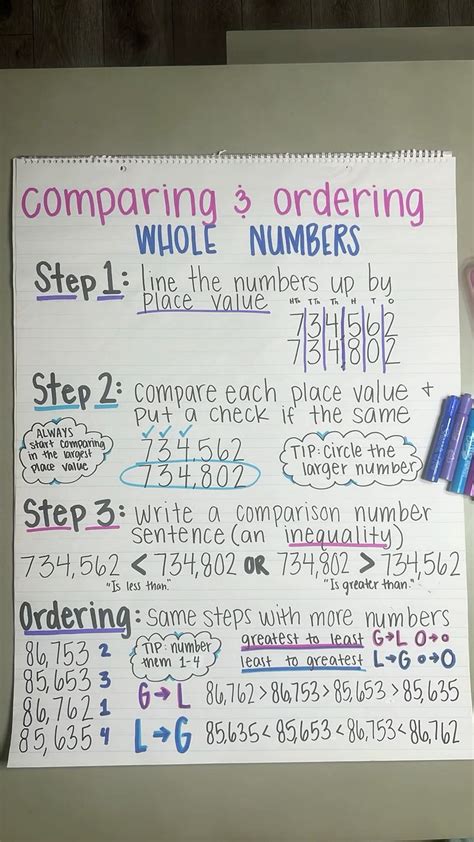 comparing & ordering
WHOLE NUMBERS
Step 1: line the numbers up by
place value
HTh TTh Th H T O
734,562
734,802
Step 2: compare each place value +
put a check if the same
ALWAYS
start comparing
in the largest
place value
✓ ✓ ✓
734,562
734,802
TIP: circle the
larger number
Step 3: write a comparison number
sentence (an inequality)
734,562 < 734,802 OR 734,802 > 734,562
"Is less than."
"Is greater than."
Ordering: same steps with more numbers
86,753 2
85,653 3
86,762 1
85,635 4
TIP: number
them 1-4
greatest to least G→L O→o
least to greatest L→G o→O
G→L 86,762 > 86,753 > 85,653 > 85,635
L→G 85,635 < 85,653 < 86,753 < 86,762